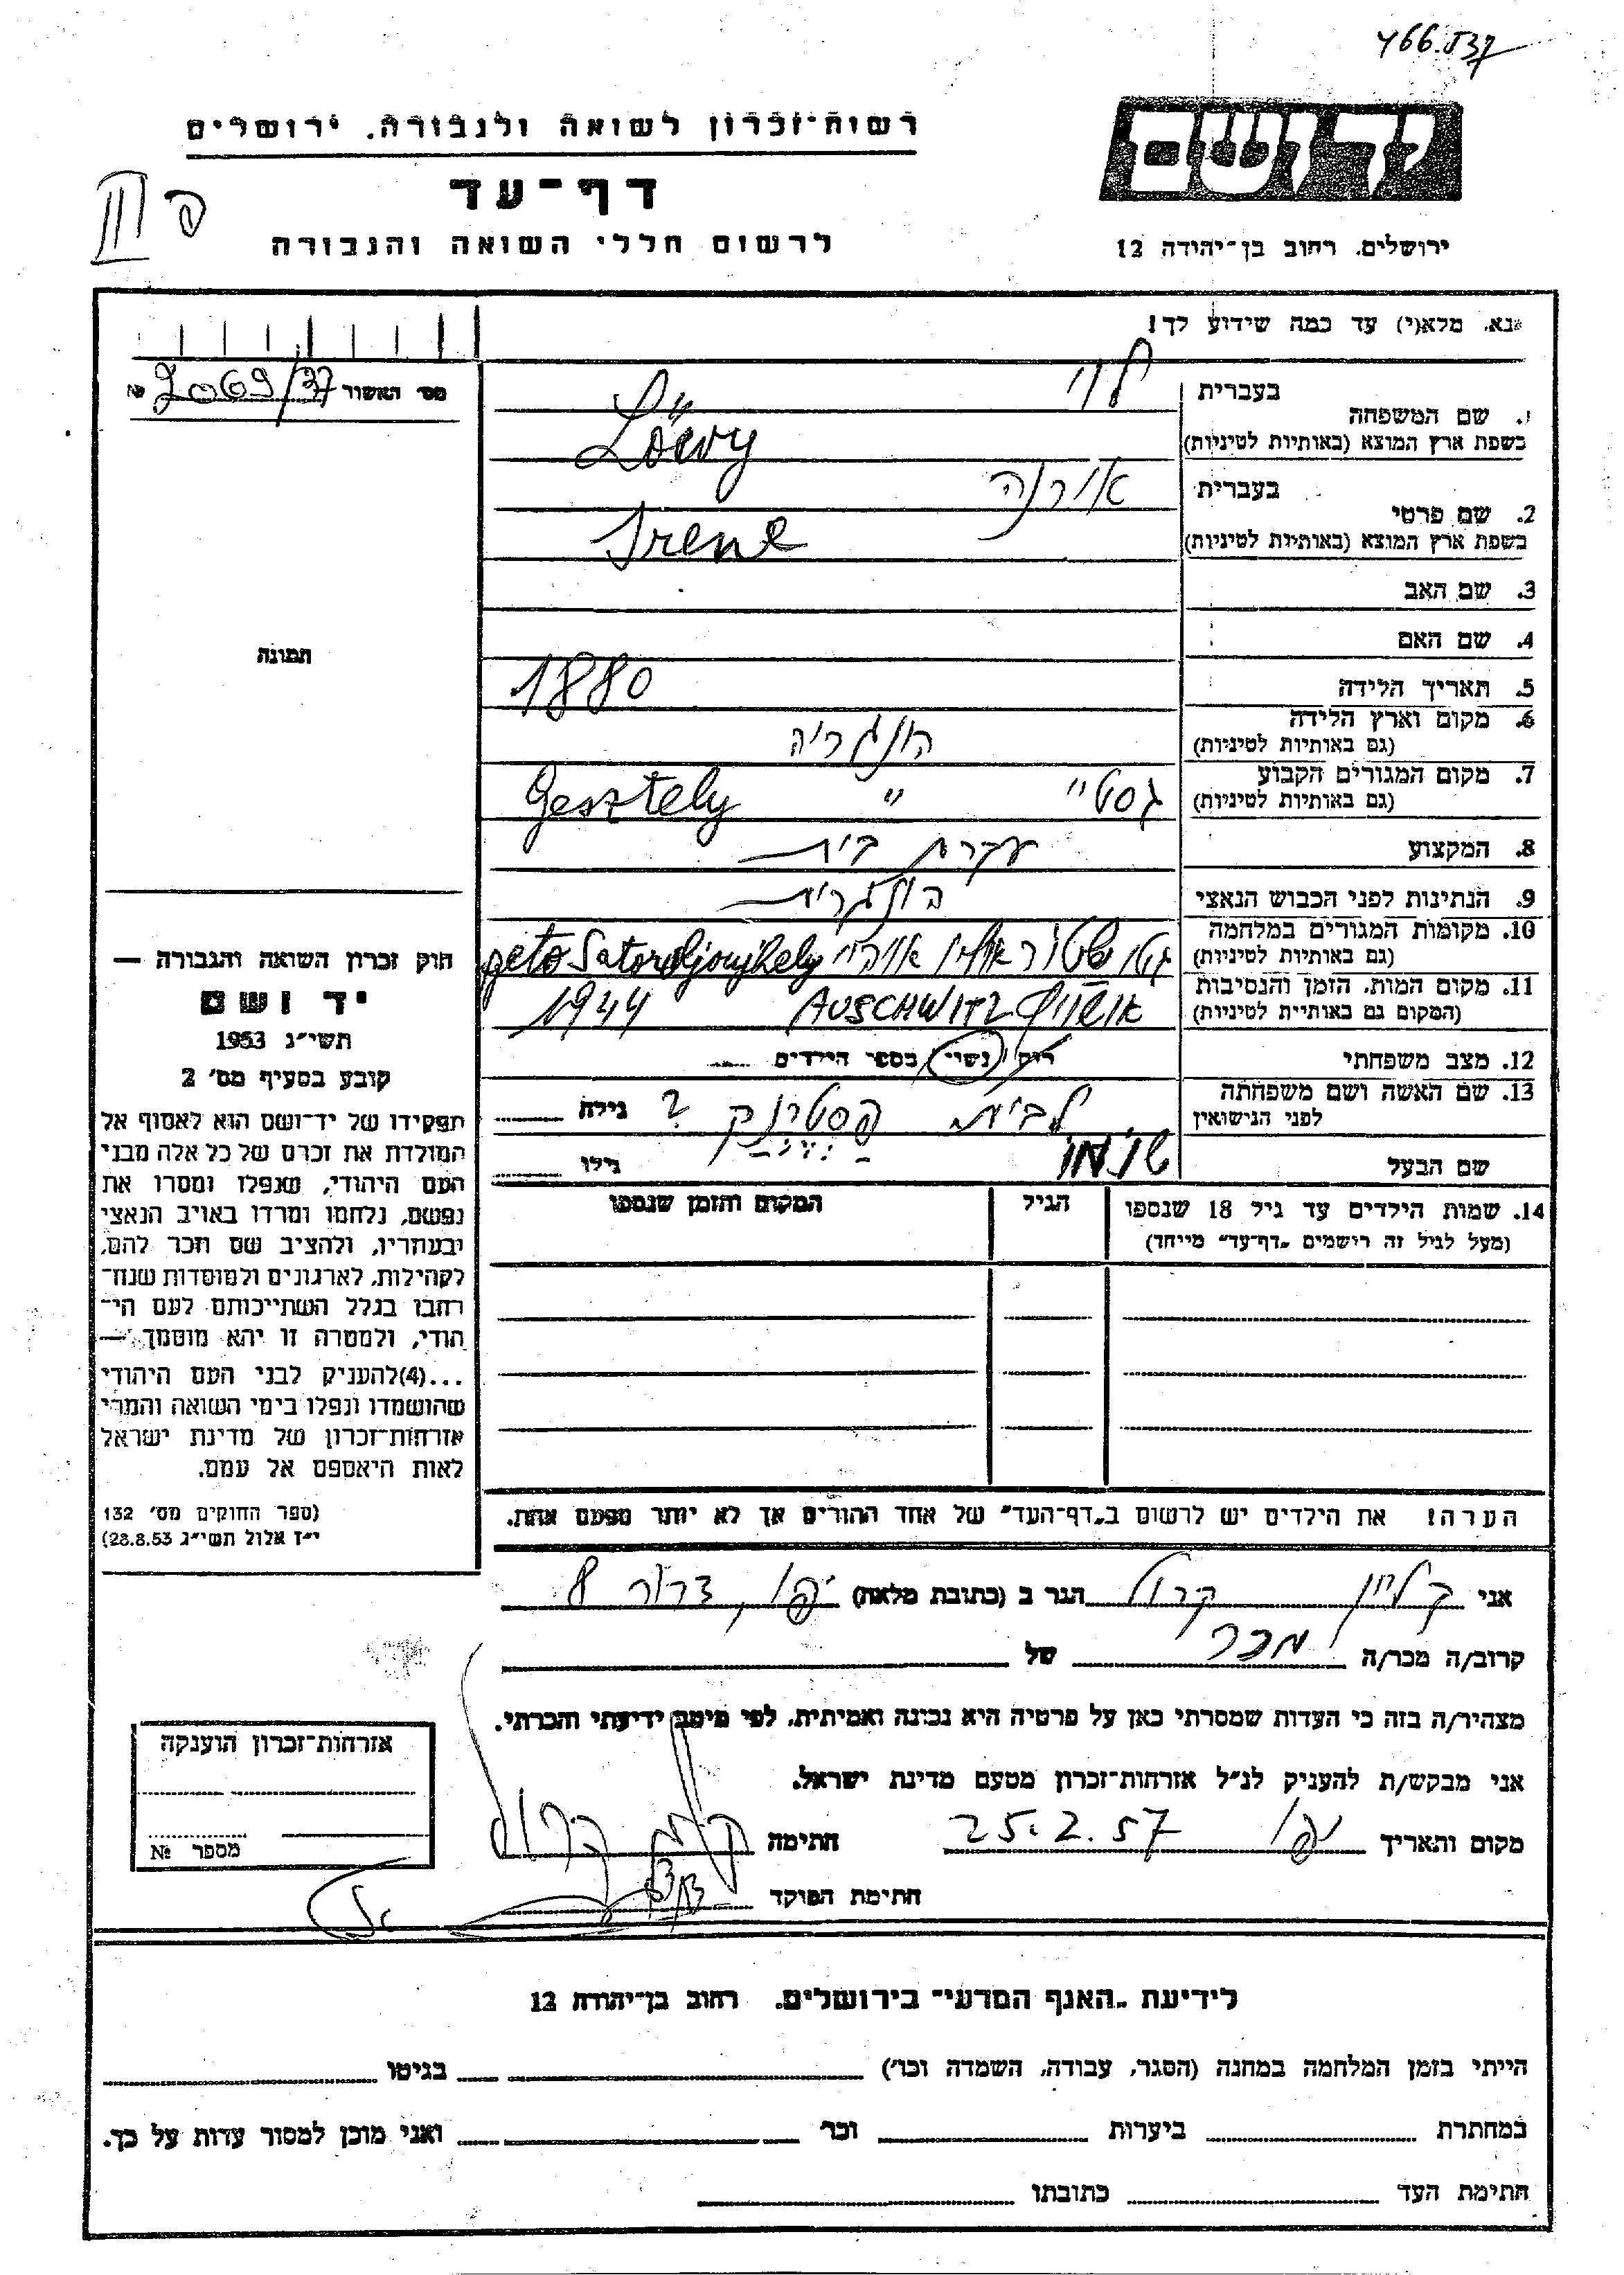 466.537
רשות-זכרון לשואה ולגבורה. ירושלים
דף-עד
לרשום חללי השואה והגבורה
III פ
יד ושם
ירושלים. רחוב בן-יהודה 12
נא. מלא(י) עד כמה שידוע לך!
מס' האשור 2069/37 №
תמונה
1. שם המשפחה בעברית לוי
בשפת ארץ המוצא (באותיות לטיניות) Löwy
2. שם פרטי בעברית אירנה
בשפת ארץ המוצא (באותיות לטיניות) Irene
3. שם האב
4. שם האם
5. תאריך הלידה 1880
6. מקום וארץ הלידה הונגריה
(גם באותיות לטיניות)
7. מקום המגורים הקבוע גסטיי " Gesztely
(גם באותיות לטיניות)
8. המקצוע עקרת בית
9. הנתינות לפני הכבוש הנאצי הונגרית
10. מקומות המגורים במלחמה גטו geto Satoraljaujhely
(גם באותיות לטיניות)
11. מקום המות. הזמן והנסיבות אושויץ AUSCHWITZ 1944
(המקום גם באותיית לטיניות)
12. מצב משפחתי רוק/ נשוי/ מספר הילדים
13. שם האשה ושם משפחתה לבית ? גילה
לפני הנישואין
שם הבעל גילו
14. שמות הילדים עד גיל 18 שנספו הגיל המקום והזמן שנספו
(מעל לגיל זה רישמים „דף-עד" מייחד)
הערה! את הילדים יש לרשום ב„דף-העד" של אחד ההורים אך לא יותר מפעם אחת.
חוק זכרון השואה והגבורה —
יד ושם
תשי״ג 1953
קובע בסעיף מס' 2
תפקידו של יד-ושם הוא לאסוף אל
המולדת את זכרם של כל אלה מבני
העם היהודי, שנפלו ומסרו את
נפשם, נלחמו ומרדו באויב הנאצי
ובעוזריו, ולהציב שם וזכר להם,
לקהילות, לארגונים ולמוסדות שנח-
רחבו בגלל השתייכותם לעם הי-
הודי, ולמטרה זו יהא מוסמך —
...(4)להעניק לבני העם היהודי
שהושמדו ונפלו בימי השואה והמרי
אזרחות-זכרון של מדינת ישראל
לאות היאספם אל עמם.
(ספר החוקים מס' 132
י״ז אלול תשי״ג 28.8.53)
אני קלמן קרול הגר ב (כתובת מלאה) יפו, דרור 8
קרוב/ה מכר/ה מכר של
מצהיר/ה בזה כי העדות שמסרתי כאן על פרטיה היא נכונה ואמיתית. לפי מיטב ידיעתי והכרתי.
אני מבקש/ת להעניק לנ״ל אזרחות-זכרון מטעם מדינת ישראל.
מקום ותאריך יפו 25.2.57 חתימה
חתימת הפוקד
אזרחות-זכרון הוענקה
מספר №
לידיעת „האגף המדעי" בירושלים. רחוב בן-יהודה 12
הייתי בזמן המלחמה במחנה (הסגר, עבודה, השמדה וכו') בגיטו
במחתרת ביערות וכו' ואני מוכן למסור עדות על כך.
חתימת העד כתובתו